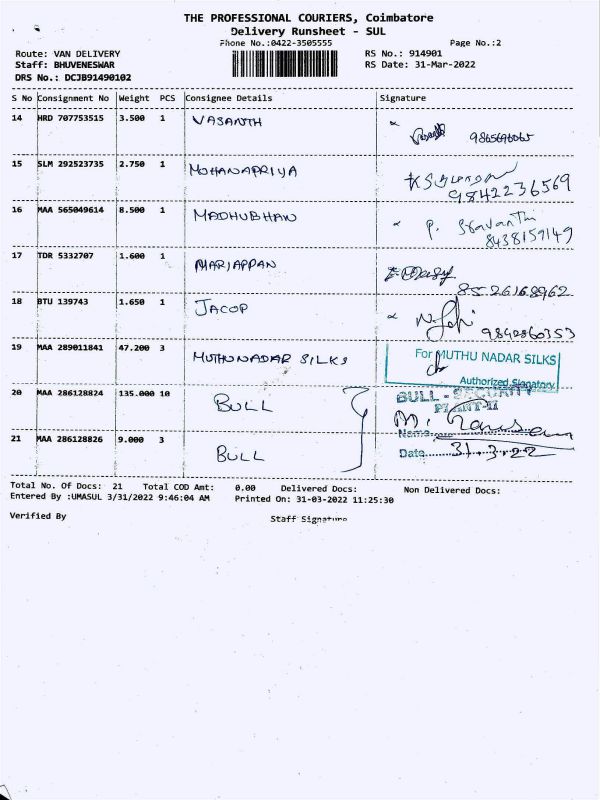 THE PROFESSIONAL COURIERS, Coimbatore
Delivery Runsheet - SUL
Phone No.:0422-3505555 Page No.:2
Route: VAN DELIVERY RS No.: 914901
Staff: BHUVENESWAR RS Date: 31-Mar-2022
DRS No.: DCJB91490102
S No Consignment No Weight PCS Consignee Details Signature
14 HRD 707753515 3.500 1 VASANTH
15 SLM 292523735 2.750 1 MOHANAPRIYA 9842236569
16 MAA 565049614 8.500 1 MADHUBHAN P. Sravanthi
8438159149
17 TDR 5332707 1.600 1 MARIAPPAN
8526168962
18 BTU 139743 1.650 1 JACOP
9842860353
19 MAA 289011841 47.200 3 MUTHUNADAR SILKS For MUTHU NADAR SILKS
Authorized Signatory
20 MAA 286128824 135.000 10 BULL BULL - SECURITY
PLANT-II
Name
21 MAA 286128826 9.000 3 BULL Date 31.3.22
Total No. Of Docs: 21 Total COD Amt: 0.00 Delivered Docs: Non Delivered Docs:
Entered By :UMASUL 3/31/2022 9:46:04 AM Printed On: 31-03-2022 11:25:30
Verified By Staff Signature